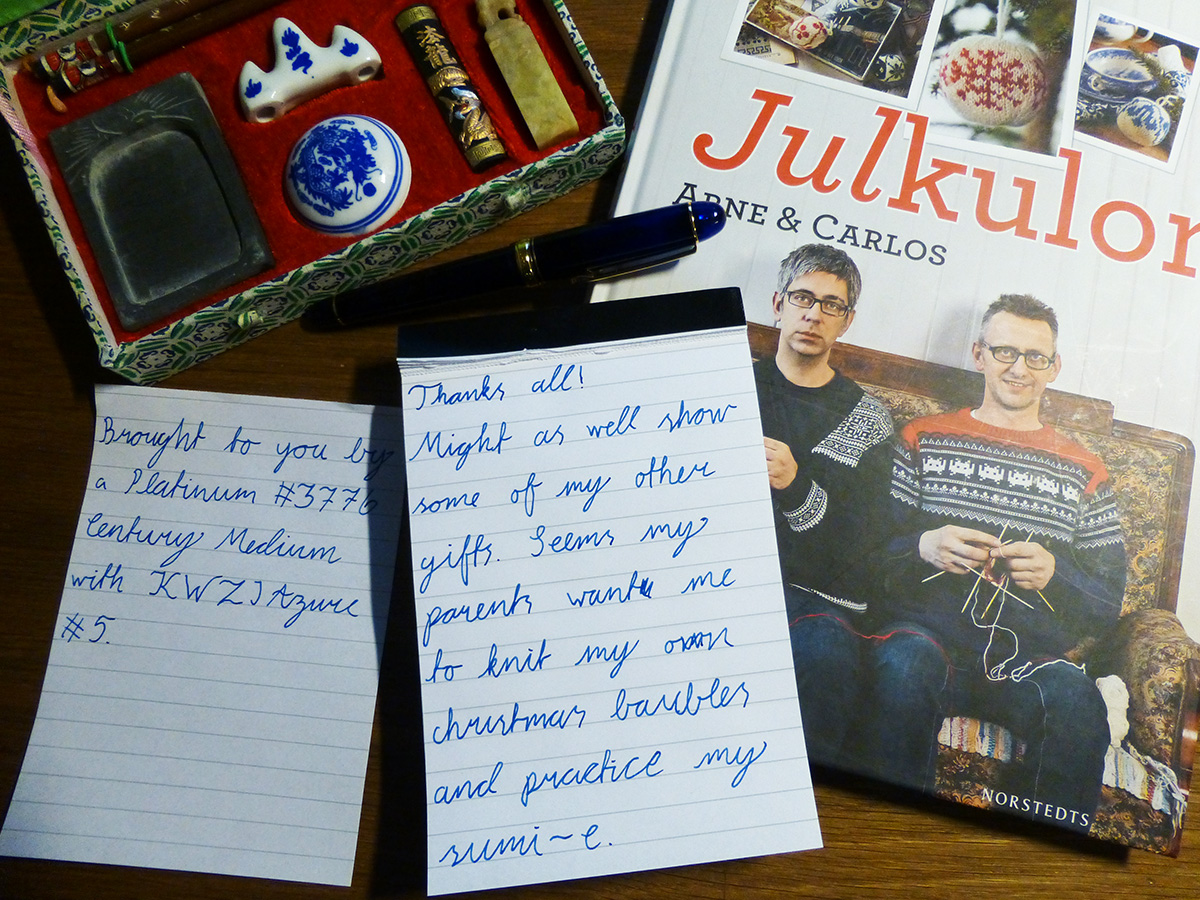 Julkulor
ARNE & CARLOS
Brought to you by
a Platinum #3776
Century Medium
with KWZI Azure
#5.
Thanks all!
Might as well show
some of my other
gifts. Seems my
parents want me
to knit my own
christmas baubles
and practice my
sumi-e.
NORSTEDTS